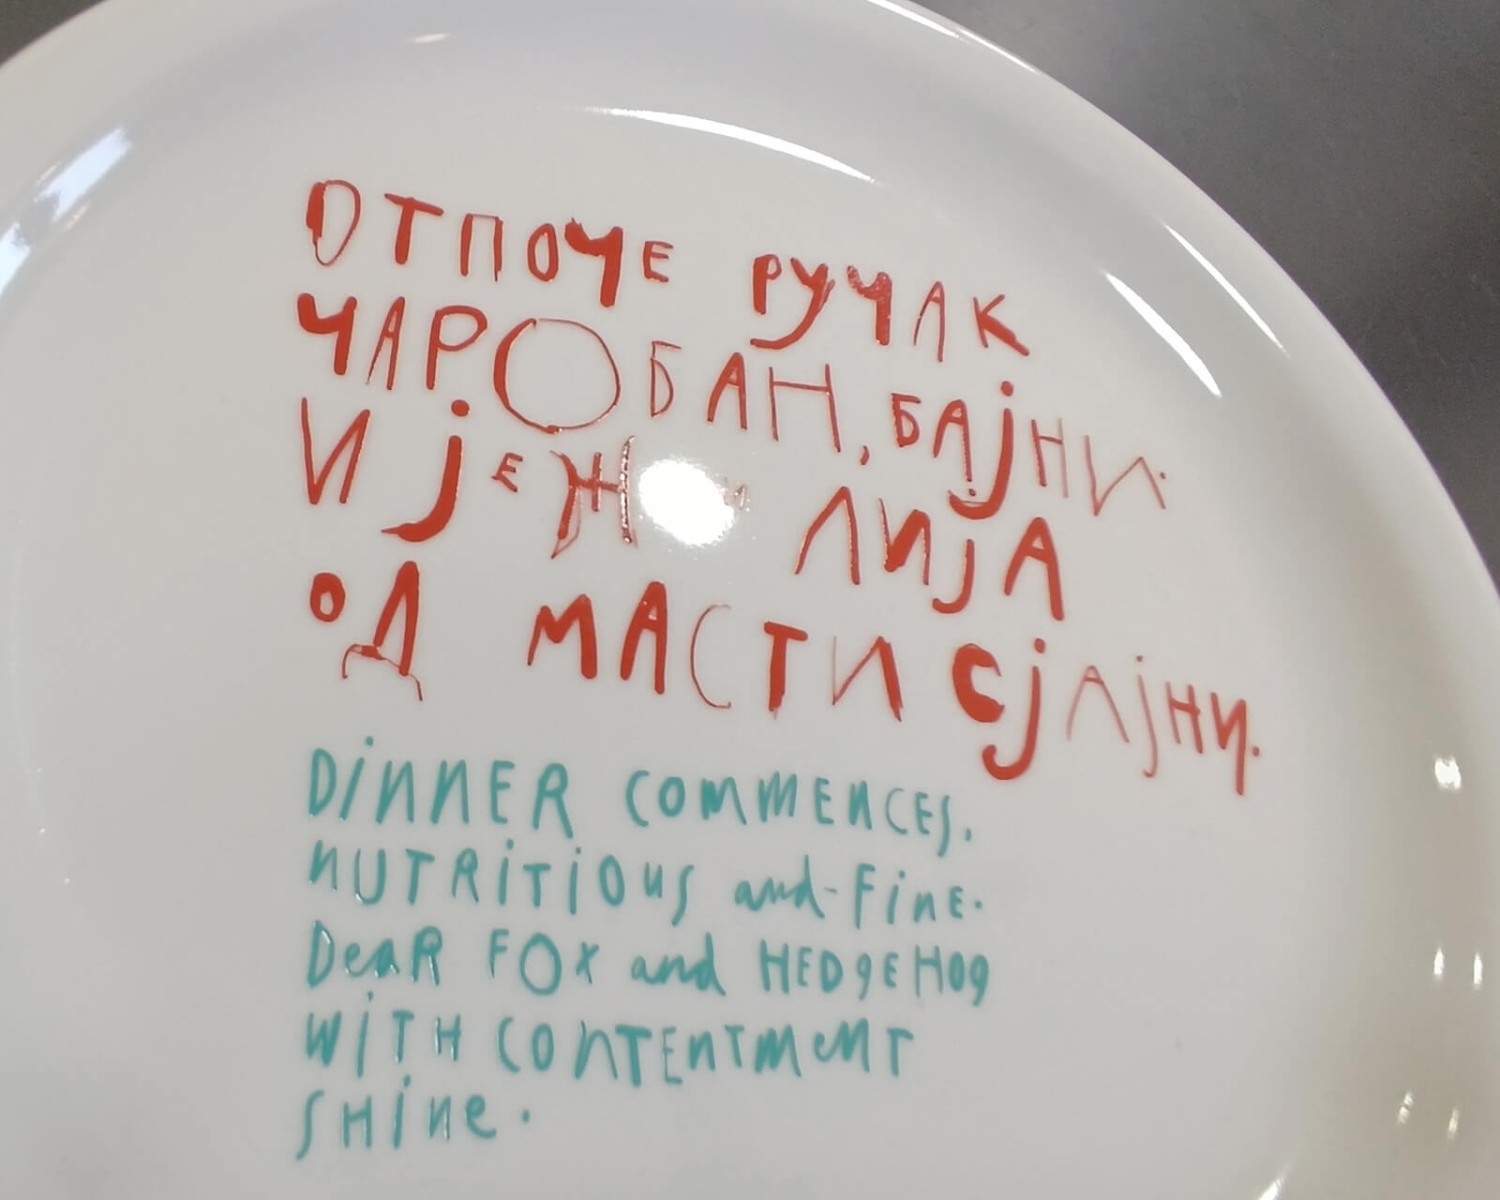 ОТПОЧЕ РУЧАК
ЧАРОБАН, БАЈНИ.
И ЈЕЖ И ЛИЈА
ОД МАСТИ СЈАЈНИ.
DINNER COMMENCES.
NUTRITIOUS and Fine.
DeaR FOX and HEDgEHOg
WITH CONTENTMENT
SHine.